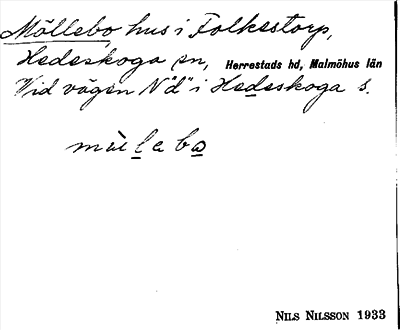 Möllebo hus i Folkestorp,
Hedeskoga sn, Herrestads hd, Malmöhus län
Vid vägen N "d" i Hedeskoga s.
mùlebo
NILS NILSSON 1933